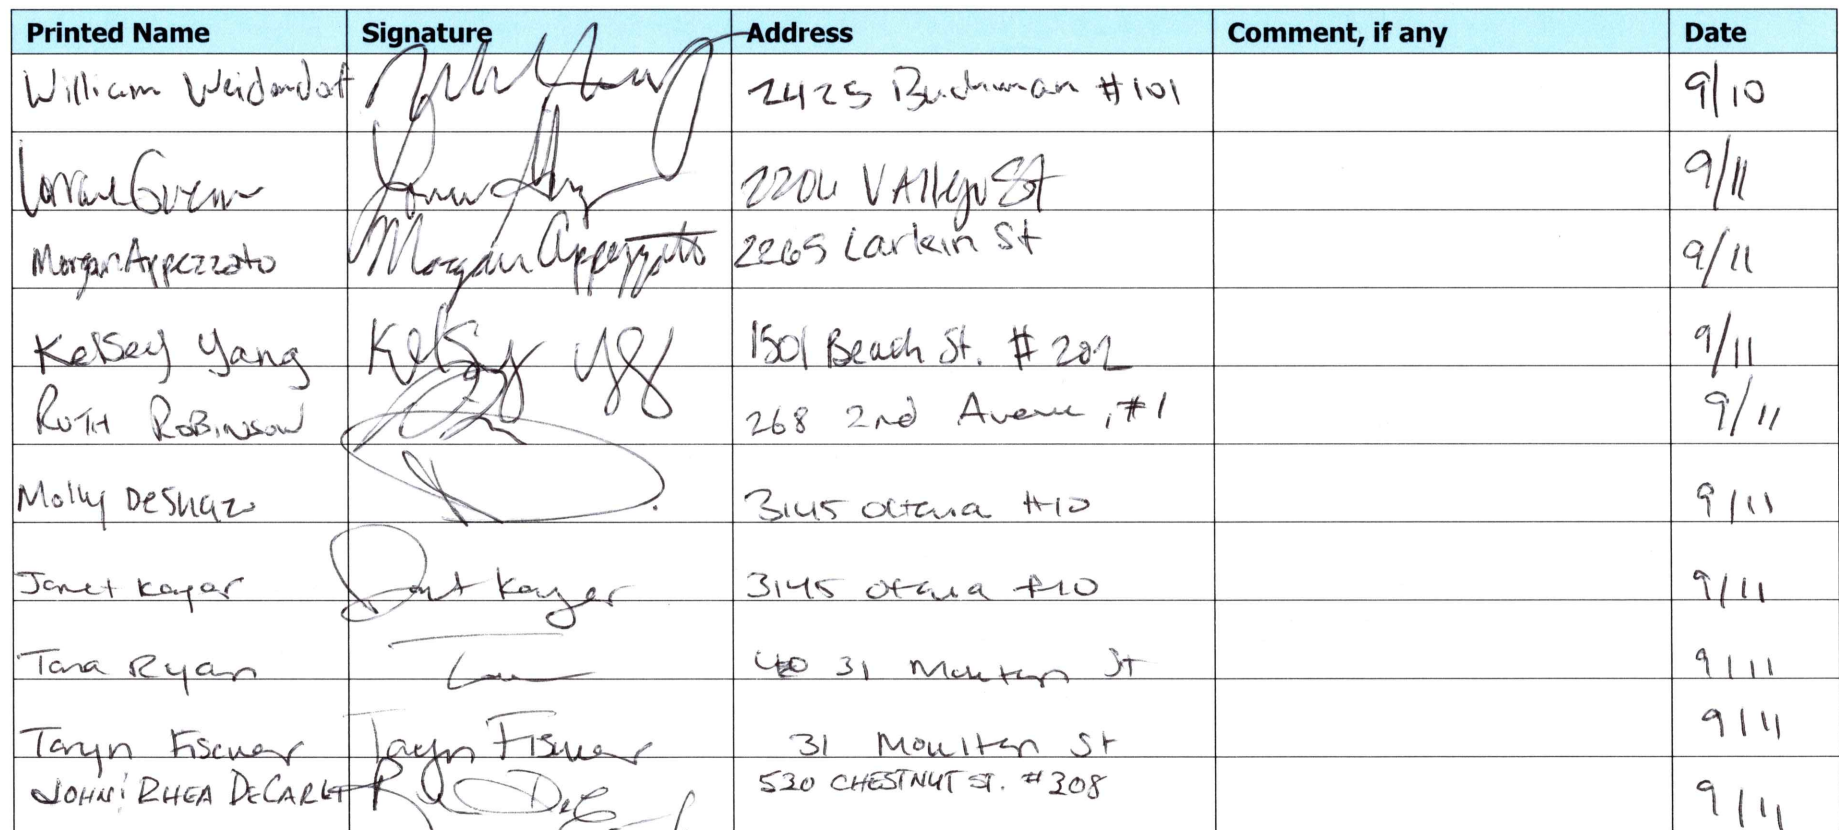 Printed Name Signature Address Comment, if any Date
William Weidendorf 2425 Buchanan #101 9/10
Lorraine 2204 Vallejo St 9/11
Morgan Appezzato Morgan Appezzato 2265 Larkin St 9/11
Kelsey Yang Kelsey 1501 Beach St. #202 9/11
RUTH ROBINSON 268 2nd Avenue, #1 9/11
Molly DeShazo 3145 #10 9/11
Janet Kayar Janet Kayser 3145 #10 9/11
Tara Ryan 31 Moulton St 9/11
Taryn Fischer Taryn Fischer 31 Moulton St 9/11
JOHN: RHEA DeCARL 530 CHESTNUT ST. #308 9/11